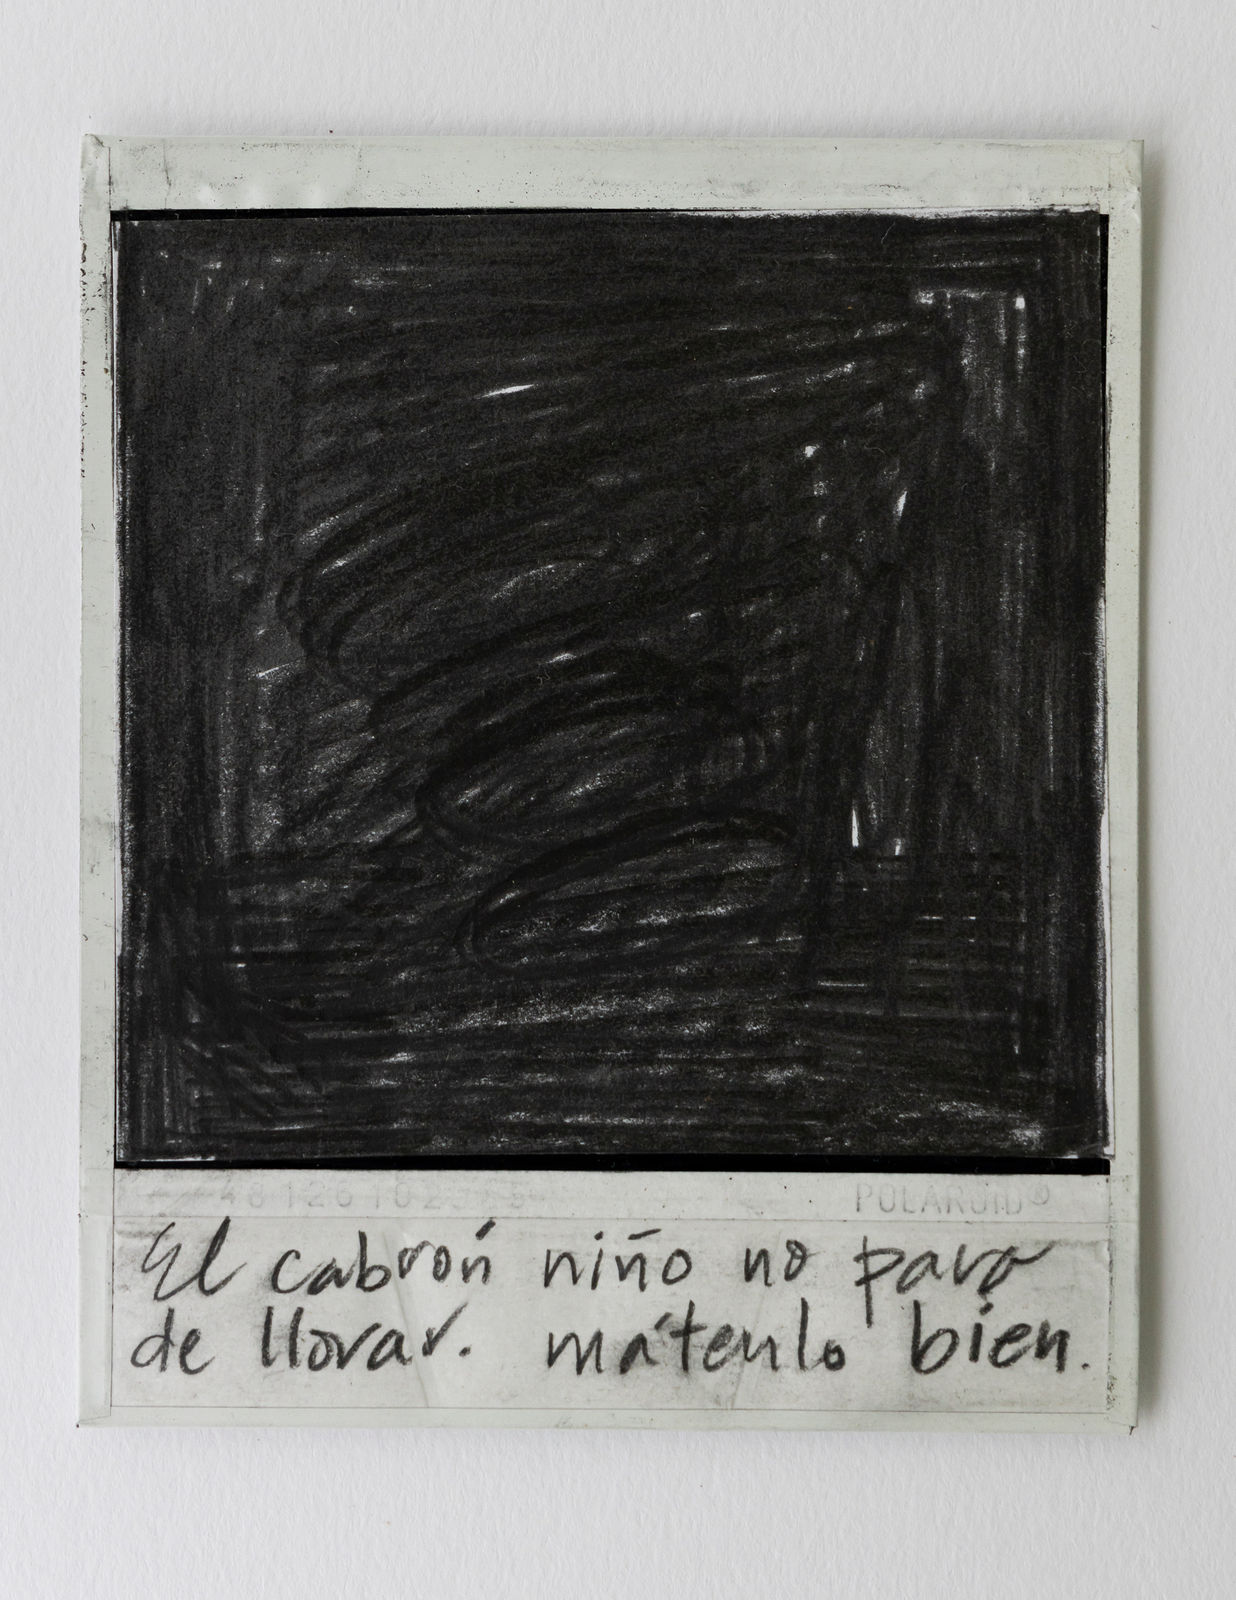 POLAROID®
El cabrón niño no para
de llorar. mátenlo bien.